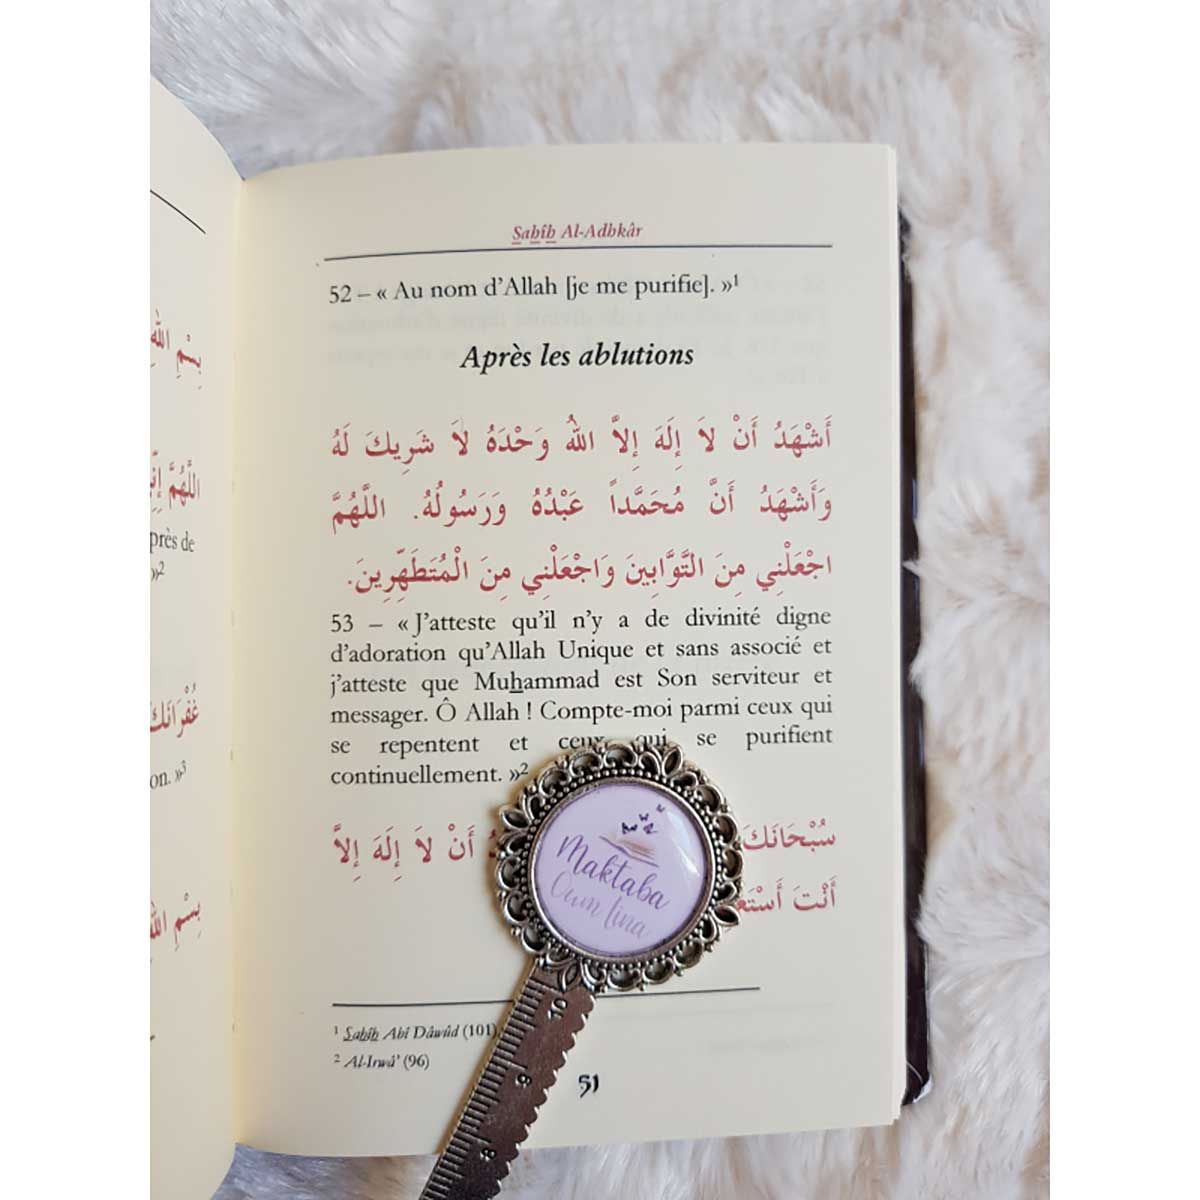 بِسْمِ اللهِ
اللَّهُمَّ
près de
»2
غُفْرَانَكَ
on. »3
بِسْمِ اللهِ
Sahîh Al-Adhkâr
52 – « Au nom d’Allah [je me purifie]. »1
Après les ablutions
أَشْهَدُ أَنْ لاَ إِلَهَ إِلاَّ اللهُ وَحْدَهُ لاَ شَرِيكَ لَهُ
وَأَشْهَدُ أَنَّ مُحَمَّداً عَبْدُهُ وَرَسُولُهُ. اللَّهُمَّ
اجْعَلْنِي مِنَ التَّوَّابِينَ وَاجْعَلْنِي مِنَ الْمُتَطَهِّرِينَ.
53 – « J’atteste qu’il n’y a de divinité digne
d’adoration qu’Allah Unique et sans associé et
j’atteste que Muhammad est Son serviteur et
messager. Ô Allah ! Compte-moi parmi ceux qui
se repentent et ceux qui se purifient
continuellement. »2
سُبْحَانَكَ أَنْ لاَ إِلَهَ إِلاَّ
أَنْتَ
Maktaba
Oum lina
1 Sahîh Abî Dâwûd (101)
2 Al-Irwâ’ (96)
51
10
9
8